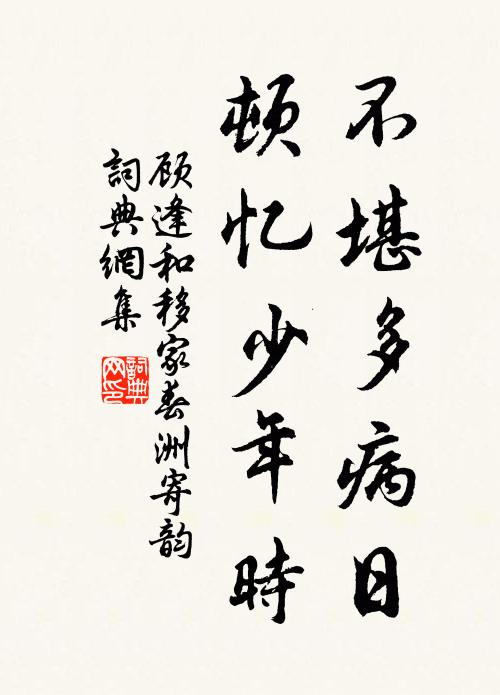 不堪多病日
顿忆少年時
顾逢和移家春洲寄韵
詞典網集
詞典网印